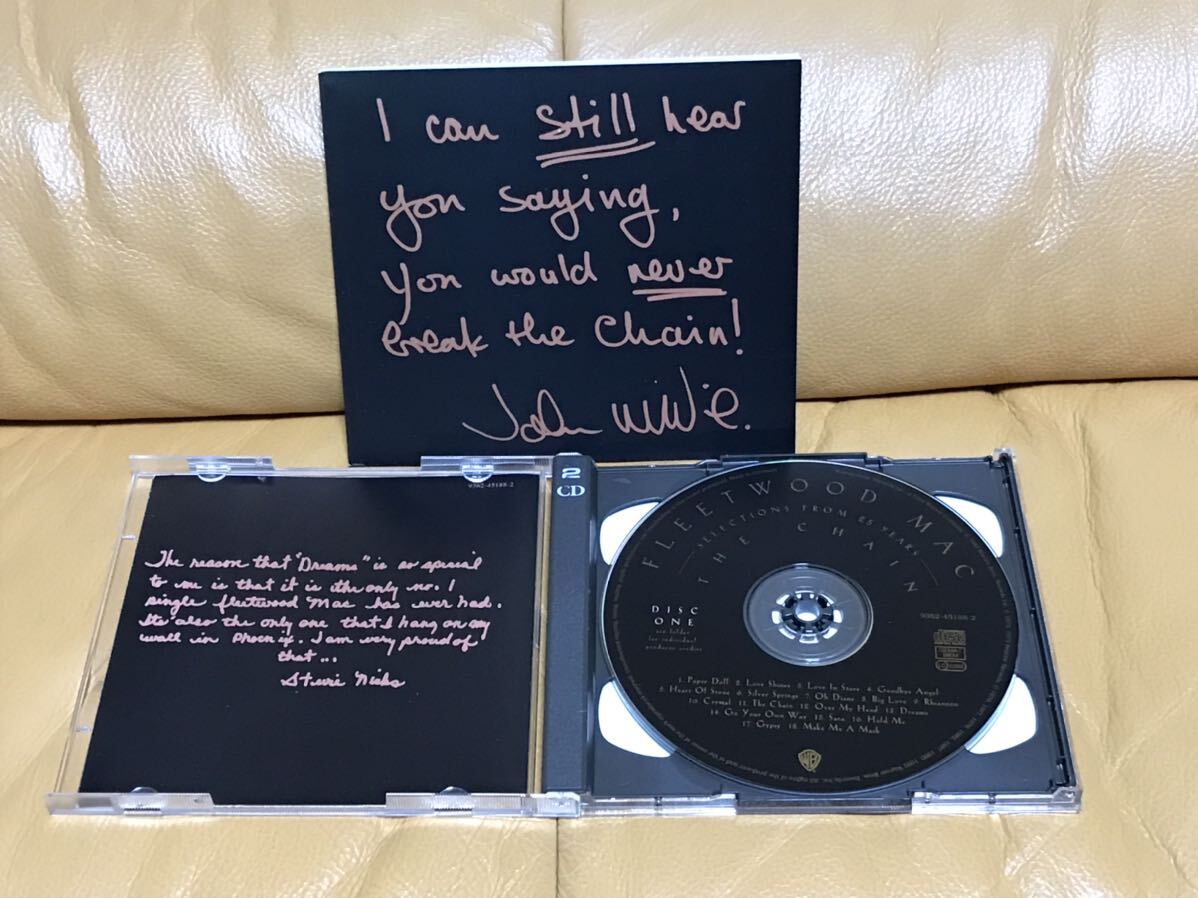 I can still hear
you saying,
you would never
break the Chain!
John McVie.
9362-45188-2
The reason that "Dreams" is so special
to me is that it is the only no. 1
single fleetwood Mac has ever had.
Its also the only one that I hang on my
wall in Phoenix. I am very proud of
that...
Stevie Nicks
2
CD
FLEETWOOD MAC
SELECTIONS FROM 25 YEARS
THE CHAIN
DISC
ONE
see folder
for individual
producer credits
9362-45188 2
1. Paper Doll 2. Love Shines 3. Love In Store 4. Goodbye Angel
5. Heart Of Stone 6. Silver Springs 7. Oh Diane 8. Big Love 9. Rhiannon
10. Crystal 11. The Chain 12. Over My Head 13. Dreams
14. Go Your Own Way 15. Sara 16. Hold Me
17. Gypsy 18. Make Me A Mask
WB